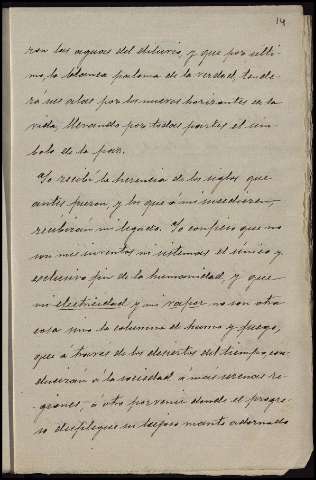 14
ron las aguas del diluvio, y que por ulti-
mo, la blanca paloma de la verdad, tende-
rá sus alas por los nuevos horizontes de la
vida, llevando por todas partes el sim-
bolo de la paz.
Yo recibi la herencia de los siglos que
antes fueron, y los que á mi sucedieren,
recibirán mi legado. Yo confieso que no
son mis inventos mi sistemas el único y
esclusivo fin de la humanidad, y que
mi electricidad y mi vapor no son otra
cosa sino la columna de humo y fuego,
que á traves de los desiertos del tiempo, con-
ducirán á la sociedad á mas serenas re-
giones, á otro porvenir donde el progre-
so despliegue su lujoso manto adornado